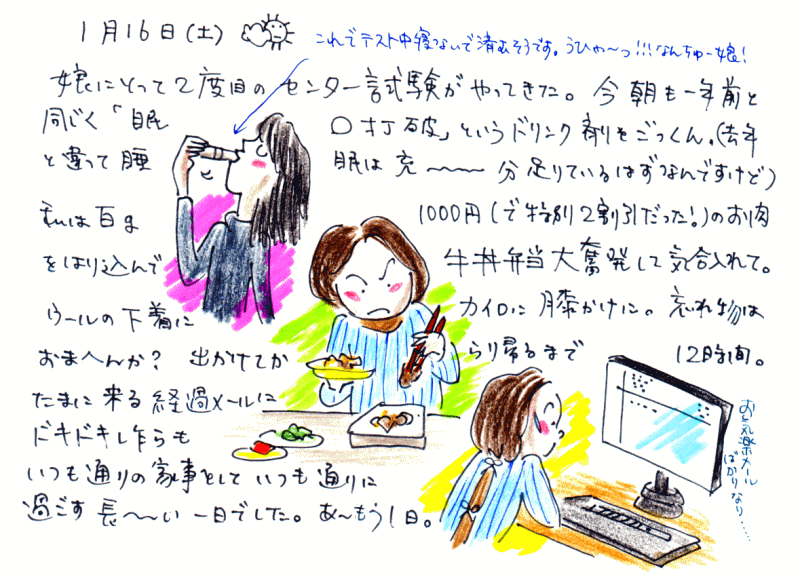 1月16日(土)
これでテスト中寝ないで済むそうです。うひゃ〜っ!!!なんちゅー娘!
娘にとって2度目のセンター試験がやってきた。今朝も一年前と
同じく「眠〇打破」というドリンク剤をごっくん。(去年
と違って睡眠は充〜〜分足りているはずなんですけど)
私は百g1000円(で特別2割引だった!)のお肉
をはり込んで牛丼弁当大奮発して気合入れて。
ウールの下着にカイロに膝かけに。忘れ物は
おまへんか?出かけてから帰るまで12時間。
たまに来る経過メールに
ドキドキし乍らも
いつも通りの家事をしていつも通りに
過ごす長〜〜い一日でした。あ〜もう1日。
お気楽メール
ばかりなり……